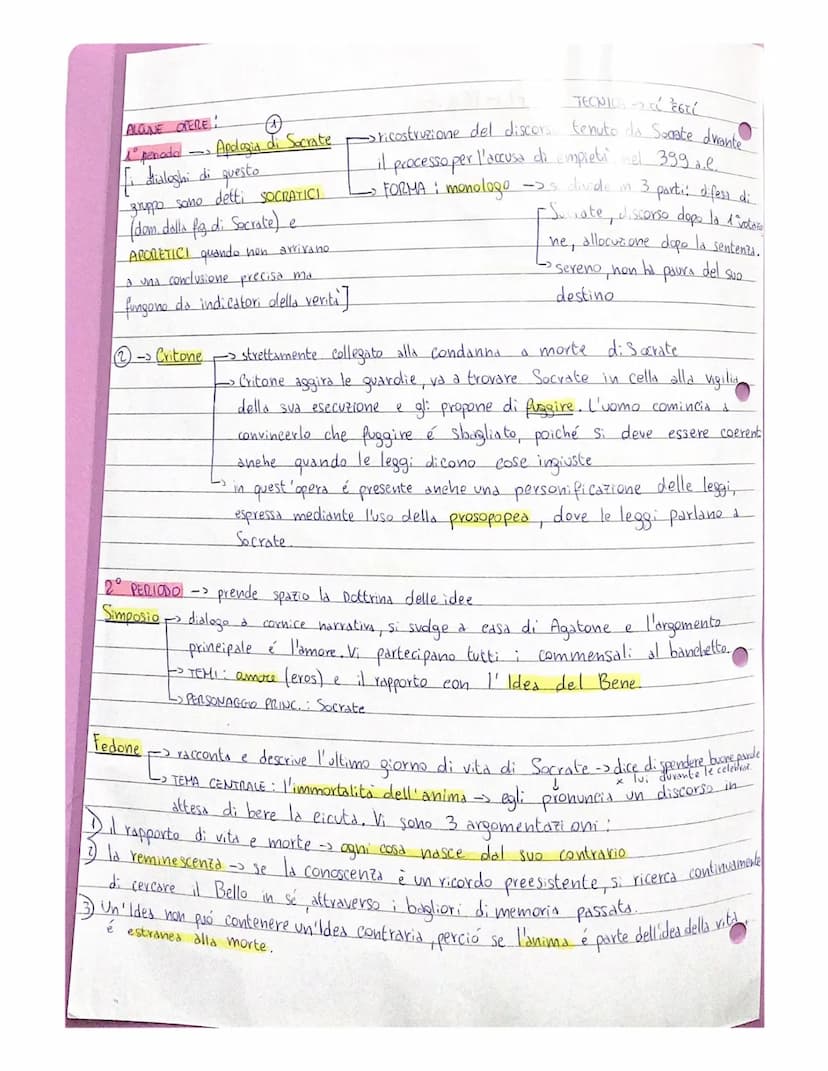 TECNICA → τί ἐστί
ALCUNE OPERE:
①
1° periodo → Apologia di Socrate → ricostruzione del discorso tenuto da Socrate dvrante
il processo per l'accusa di empietà nel 399 a.C.
→ FORMA: monologo → si divide in 3 parti: difesa di
Socrate, discorso dopo la 1ª votazio
ne, allocuzione dopo la sentenza.
→ sereno, non ha paura del suo
destino
[i dialoghi di questo
gruppo sono detti SOCRATICI
(dom. dalla fg. di Socrate) e
APORETICI quando non arrivano
a una conclusione precisa ma
fungono da indicatori della verità]
② → Critone → strettamente collegato alla condanna a morte di Socrate
→ Critone aggira le guardie, va a trovare Socrate in cella alla vigilia
della sua esecuzione e gli propone di fuggire. L'uomo comincia a
convincerlo che fuggire é sbagliato, poiché si deve essere coerent
anche quando le leggi dicono cose ingiuste
→ in quest'opera é presente anche una personificazione delle leggi,
espressa mediante l'uso della prosopopea, dove le leggi parlano a
Socrate.
2° PERIODO → prende spazio la Dottrina delle idee
Simposio → dialogo a cornice narrativa, si svolge a casa di Agatone e l'argomento
principale é l'amore. Vi partecipano tutti i commensali al banchetto.
→ TEMI: amore (eros) e il rapporto con l'Idea del Bene.
→ PERSONAGGIO PRINC.: Socrate
Fedone → racconta e descrive l'ultimo giorno di vita di Socrate → dice di spendere buone parole
x lui durante le celebraz.
→ TEMA CENTRALE: l'immortalità dell'anima → egli pronuncia un discorso in
attesa di bere la cicuta. Vi sono 3 argomentazioni:
1) il rapporto di vita e morte → ogni cosa nasce dal suo contrario
2) la reminescenza → se la conoscenza è un ricordo preesistente, si ricerca continuamente
di cercare il Bello in sé, attraverso i bagliori di memoria passata.
3) Un'Idea non puó contenere un'Idea contraria, perció se l'anima é parte dell'idea della vita,
é estranea alla morte.